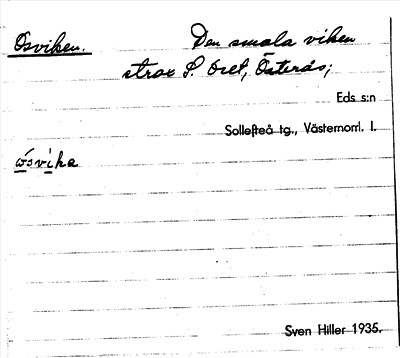 Ösviken. Den smala viken
strax S. Oset, Österås;
Eds s:n
Sollefteå tg., Västernorrl. l.
ẁ̀svika
Sven Hiller 1935.